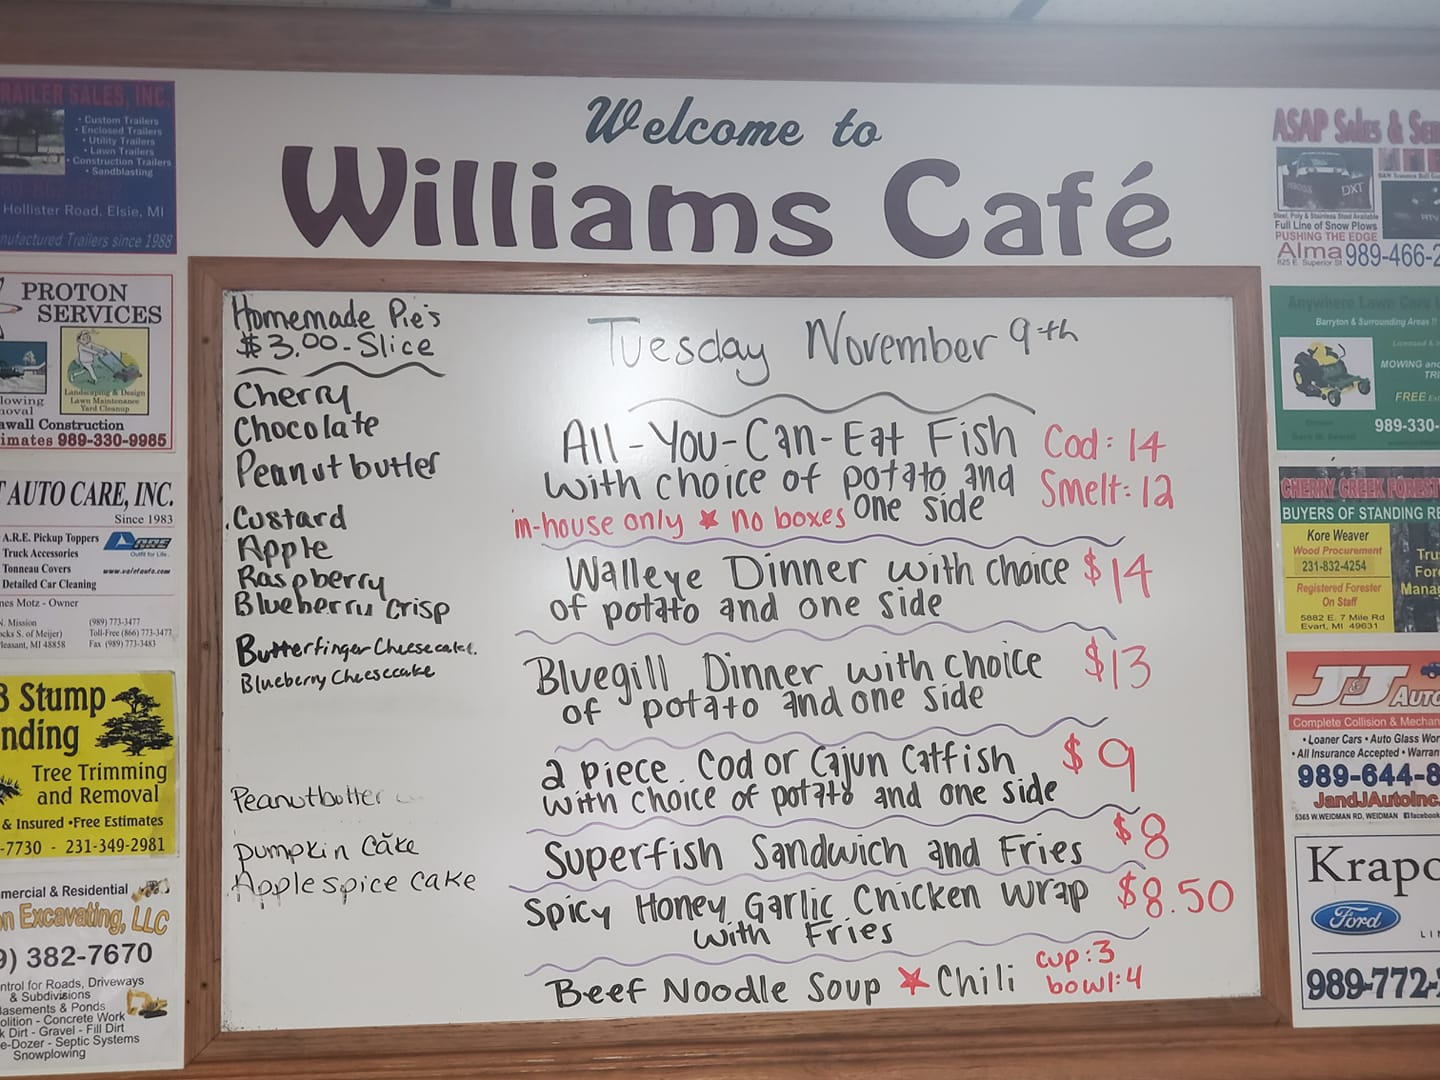 Welcome to
Williams Café
Homemade Pie's
$3.00-Slice
Cherry
Chocolate
Peanut butter
Custard
Apple
Raspberry
Blueberry Crisp
Butterfinger Cheesecake.
Blueberry Cheesecake
Peanutbutter
Pumpkin Cake
Apple spice Cake
Tuesday November 9th
All-You-Can-Eat Fish
with choice of potato and
one side
Cod: 14
Smelt: 12
in-house only ★ no boxes
Walleye Dinner with choice $14
of potato and one side
Bluegill Dinner with choice $13
of potato and one side
2 piece. Cod or Cajun Catfish $9
with choice of potato and one side
Superfish Sandwich and Fries $8
Spicy Honey Garlic Chicken Wrap $8.50
with Fries
Beef Noodle Soup ★ Chili
cup: 3
bowl: 4
RAILER SALES, INC.
• Custom Trailers
• Enclosed Trailers
• Utility Trailers
• Lawn Trailers
• Construction Trailers
• Sandblasting
Hollister Road, Elsie, MI
nufactured Trailers since 1988
PROTON
SERVICES
Landscaping & Design
Lawn Maintenance
Yard Cleanup
lowing
moval
awall Construction
imates 989-330-9985
T AUTO CARE, INC.
Since 1983
A.R.E. Pickup Toppers
Truck Accessories
Tonneau Covers
Detailed Car Cleaning
ARE
Outfit for Life.
www.valetauto.com
nes Motz - Owner
N. Mission
ocks S. of Meijer)
leasant, MI 48858
(989) 773-3477
Toll-Free (866) 773-3477
Fax (989) 773-3483
B Stump
nding
Tree Trimming
and Removal
& Insured •Free Estimates
-7730 - 231-349-2981
mercial & Residential
on Excavating, LLC
9) 382-7670
ntrol for Roads, Driveways
& Subdivisions
Basements & Ponds
olition - Concrete Work
k Dirt - Gravel - Fill Dirt
e-Dozer - Septic Systems
Snowplowing
ASAP Sales & Se
BOSS
DXT
Steel, Poly & Stainless Steel Available
Full Line of Snow Plows
PUSHING THE EDGE
Alma
825 E. Superior St
989-466-2
Anywhere Lawn Care
Barryton & Surrounding Areas !!
MOWING and
TRI
FREE Est
989-330-
CHERRY CREEK FOREST
BUYERS OF STANDING
Kore Weaver
Wood Procurement
231-832-4254
Registered Forester
On Staff
5882 E. 7 Mile Rd
Evart, MI 49631
Tru
Fore
Manag
J&J AUTO
Complete Collision & Mechan
• Loaner Cars • Auto Glass Wor
• All Insurance Accepted • Warran
989-644-8
JandJAutoInc.
5365 W.WEIDMAN RD, WEIDMAN facebook
Krapo
Ford
LIN
989-772-